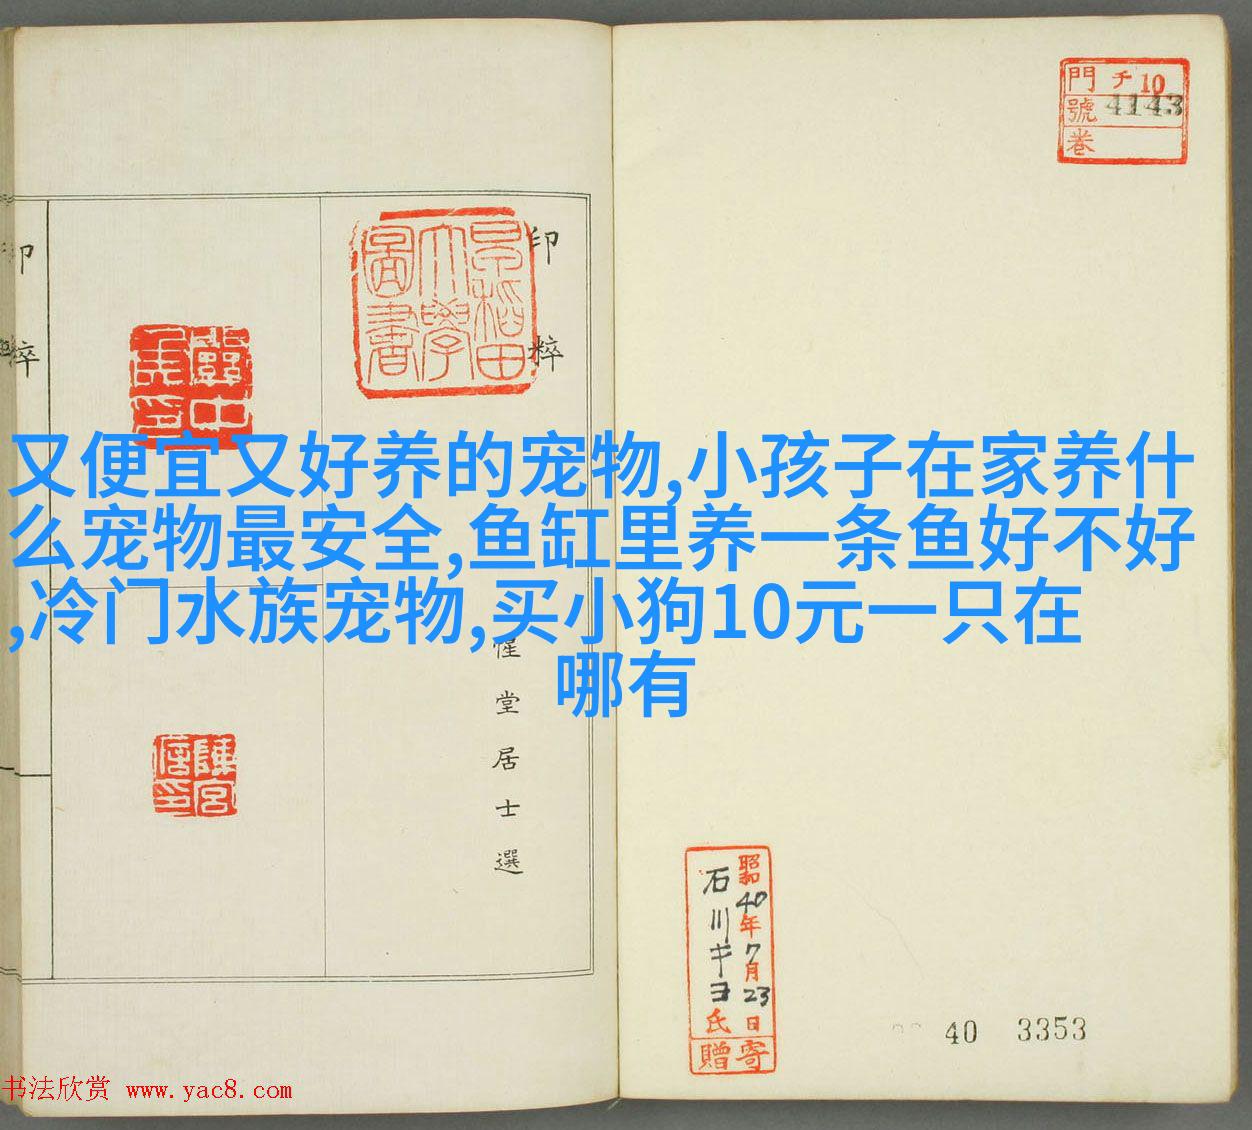 又便宜又好养的宠物,小孩子在家养什
么宠物最安全,鱼缸里养一条鱼好不好
,冷门水族宠物,买小狗10元一只在
哪有
門 チ 10
號 4143
卷
印粹
惺堂居士選
印粹
早稲田
大學
圖書
昭和40年7月23日
石川キヨ氏
寄贈
40 3353
书法欣赏 www.yac8.com